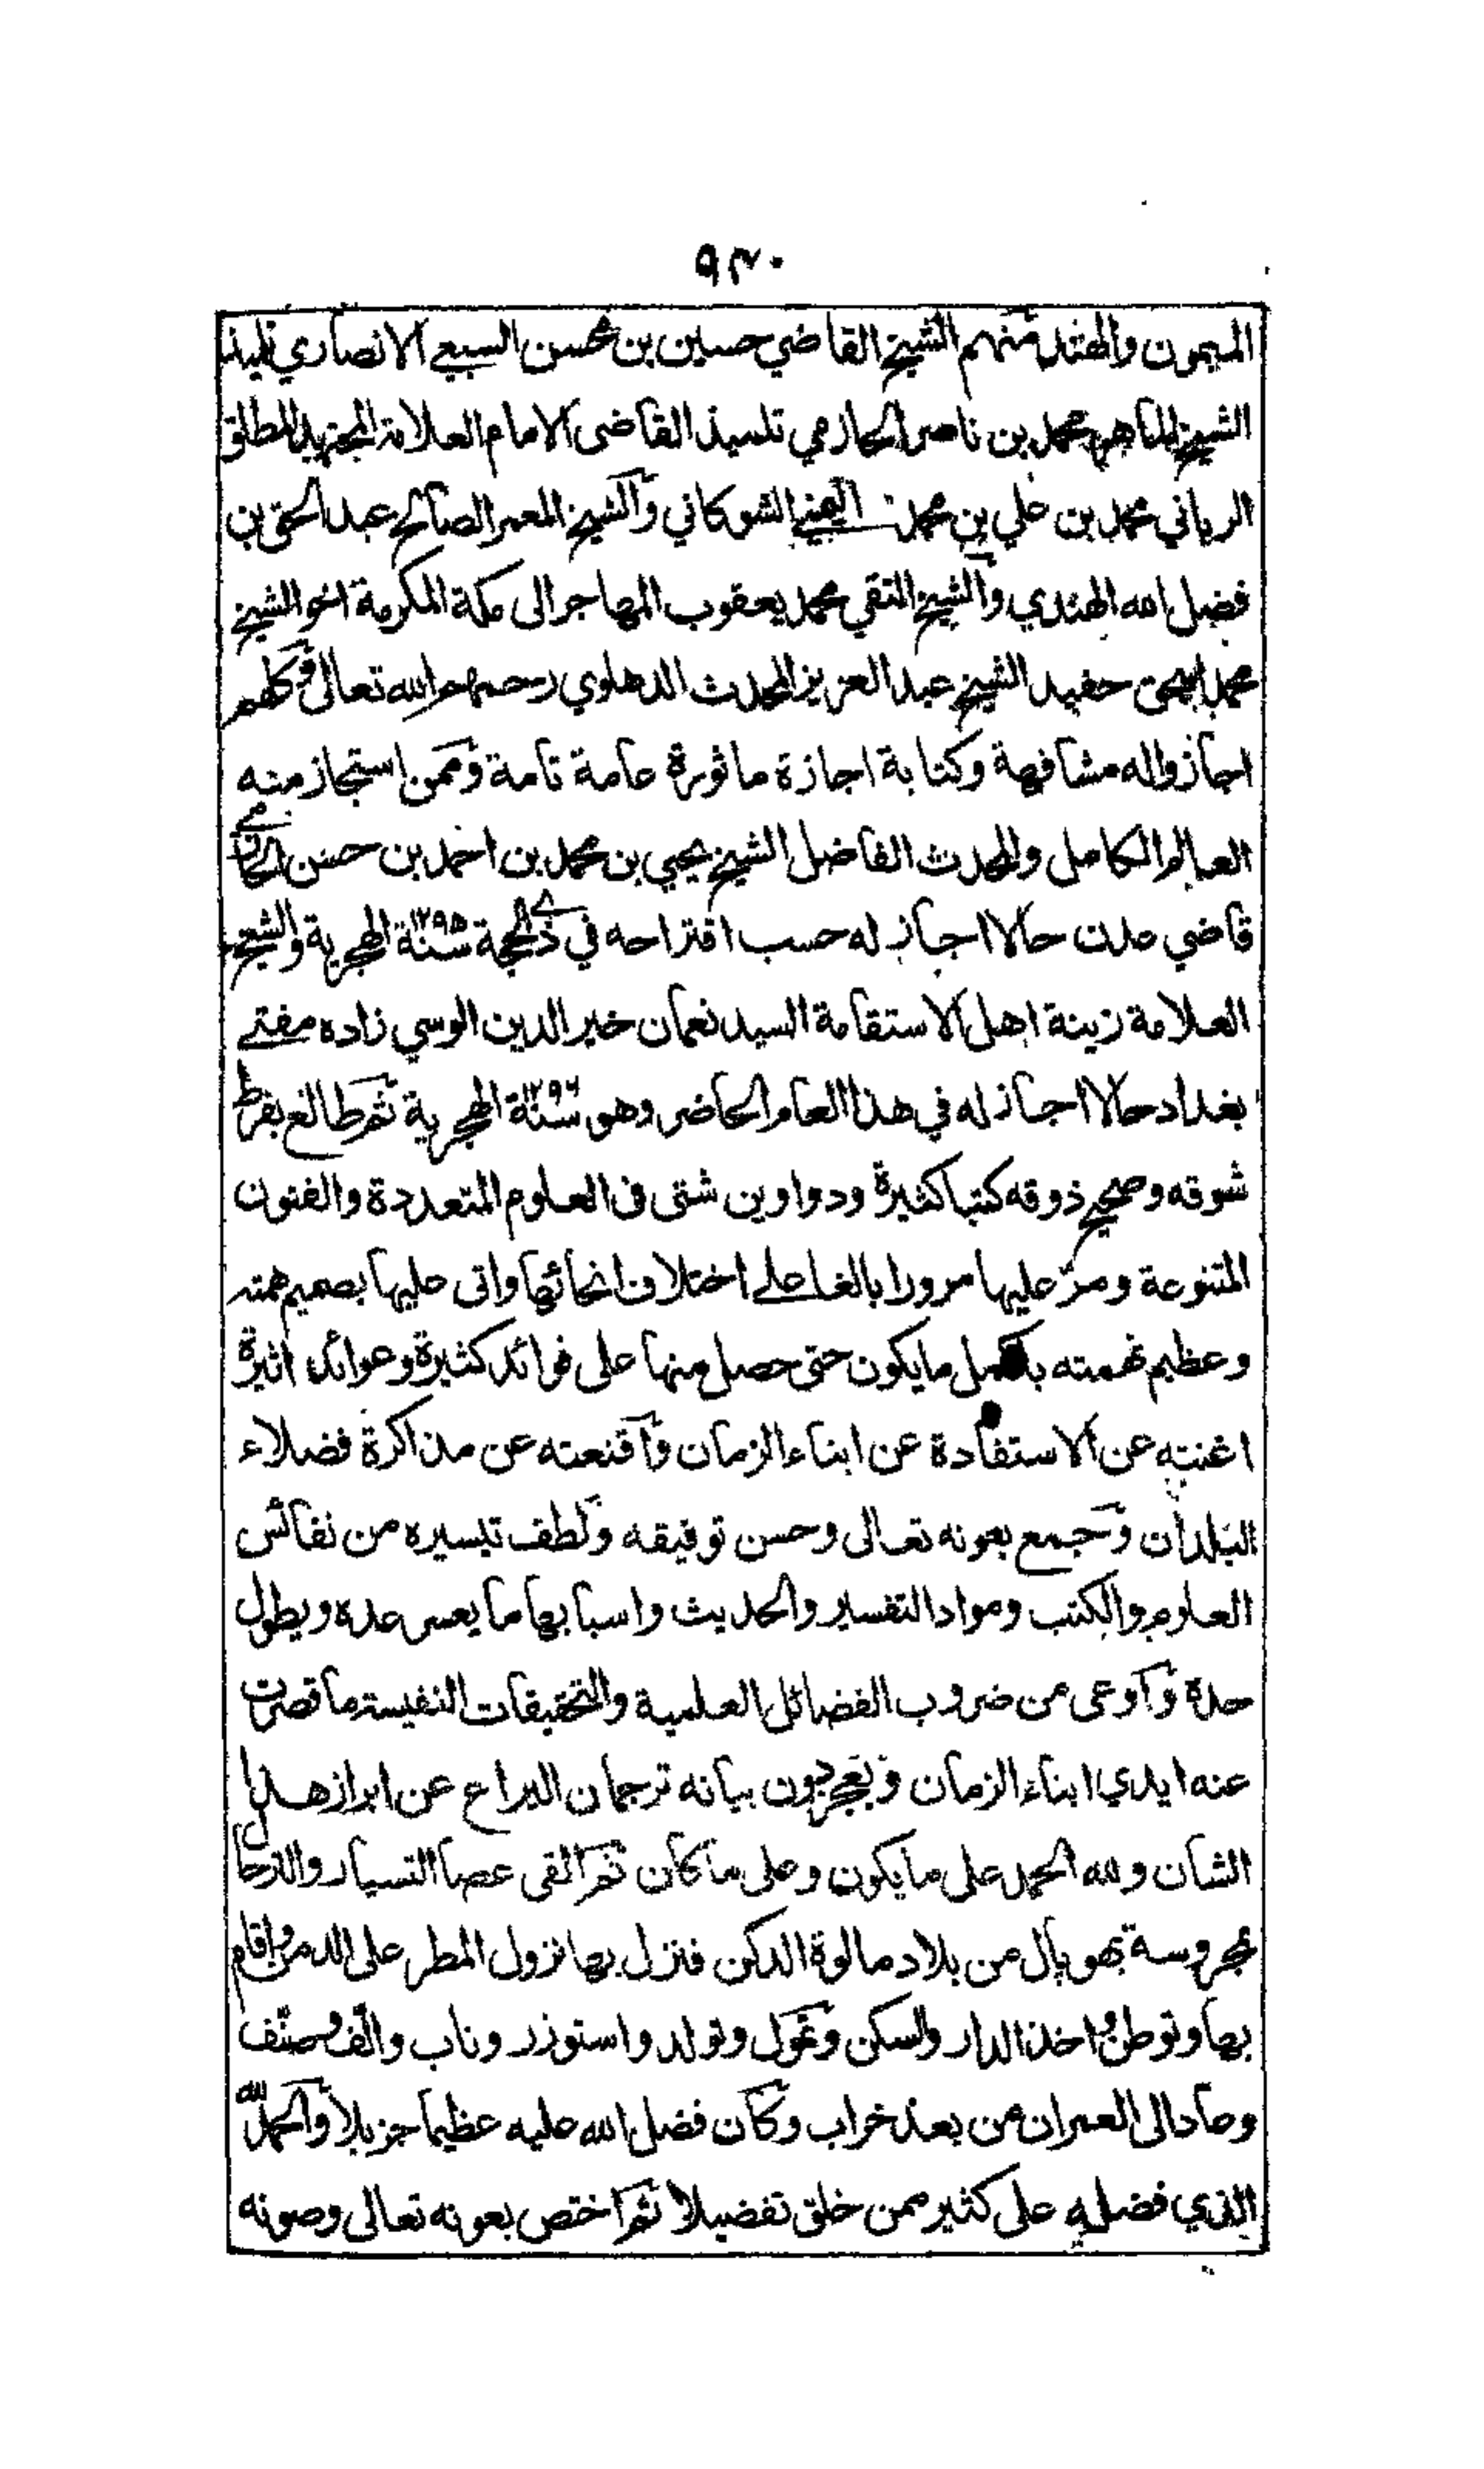 ٩٤٠
الميمون والهند منهم الشيخ القاضي حسين بن محسن السبيعي الانصاري تلميذ
الشيخ الماهر محمد بن ناصر الحازمي تلميذ القاضى الامام العلامة المجتهد المطلق
الرباني محمد بن علي بن محمد اليمني الشوكاني والشيخ المعمر الصالح عبد الحق بن
فضل الله الهندي والشيخ التقي محمد يعقوب المهاجر الى مكة المكرمة اخو الشيخ
محمد اسحق حفيد الشيخ عبد العزيز المحدث الدهلوي رحمهم الله تعالى وكلهم
اجازوا له مشافهة وكتابة اجازة ماثورة عامة تامة وممن استجاز منه
العالم الكامل والمحدث الفاضل الشيخ يحيى بن محمد بن احمد بن حسن الحازمي
قاضي عدن حالا اجاز له حسب اقتراحه في ذي الحجة سنة ١٢٩٥ الهجرية والشيخ
العلامة زينة اهل الاستقامة السيد نعمان خير الدين الوسي زاده مفتي
بغداد حالا اجاز له في هذا العام الحاضر وهو سنة ١٢٩٦ الهجرية ثم طالع بفرط
شوقه وصحيح ذوقه كتبا كثيرة ودواوين شتى فى العلوم المتعددة والفنون
المتنوعة ومر عليها مرورا بالغا على اختلاف انحائها واتى عليها بصميم همته
وعظيم نهمته باكمل ما يكون حتى حصل منها على فوائد كثيرة وعوائد اثيرة
اغنته عن الاستفادة عن ابناء الزمان واقنعته عن مذاكرة فضلاء
البلدان وجمع بعونه تعالى وحسن توفيقه ولطف تيسيره من نفائس
العلوم والكتب ومواد التفسير والحديث واسبابها ما يعسر عده ويطول
حده واوعى من ضروب الفضائل العلمية والتحقيقات النفيسة ما قصرت
عنه ايدي ابناء الزمان ويعجز دون بيانه ترجمان اليراع عن ابراز هذا
الشان ولله الحمد على ما يكون وعلى ما كان ثم القى عصا التسيار والترحال
بمحروسة بهوپال من بلاد مالوة الدكن فنزل بها نزول المطر على الدمن واقام
بها وتوطن واخذ الدار والسكن وتمول وتولد واستوزر وناب والف وصنف
وعاد الى العمران من بعد خراب وكان فضل الله عليه عظيما جزيلا والحمد لله
الذي فضله على كثير ممن خلق تفضيلا ثم اختص بعونه تعالى وصونه